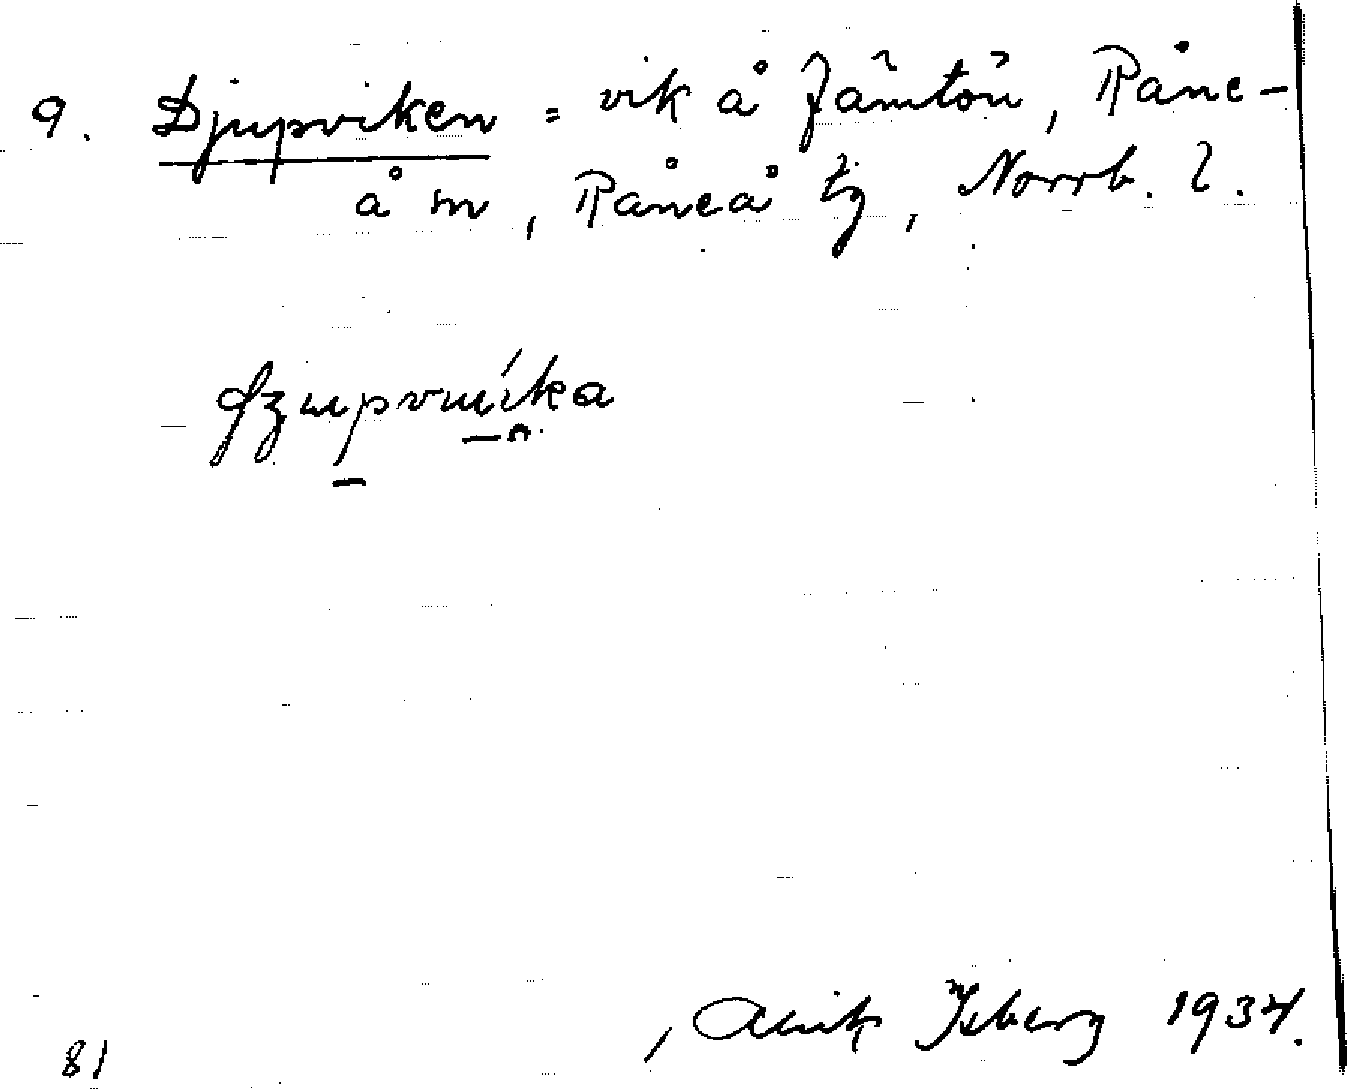 9. Djupviken = vik å Jämtön, Råne-
å sn, Råneå tg, Norrb. l.
Alrik Isberg 1934.
81